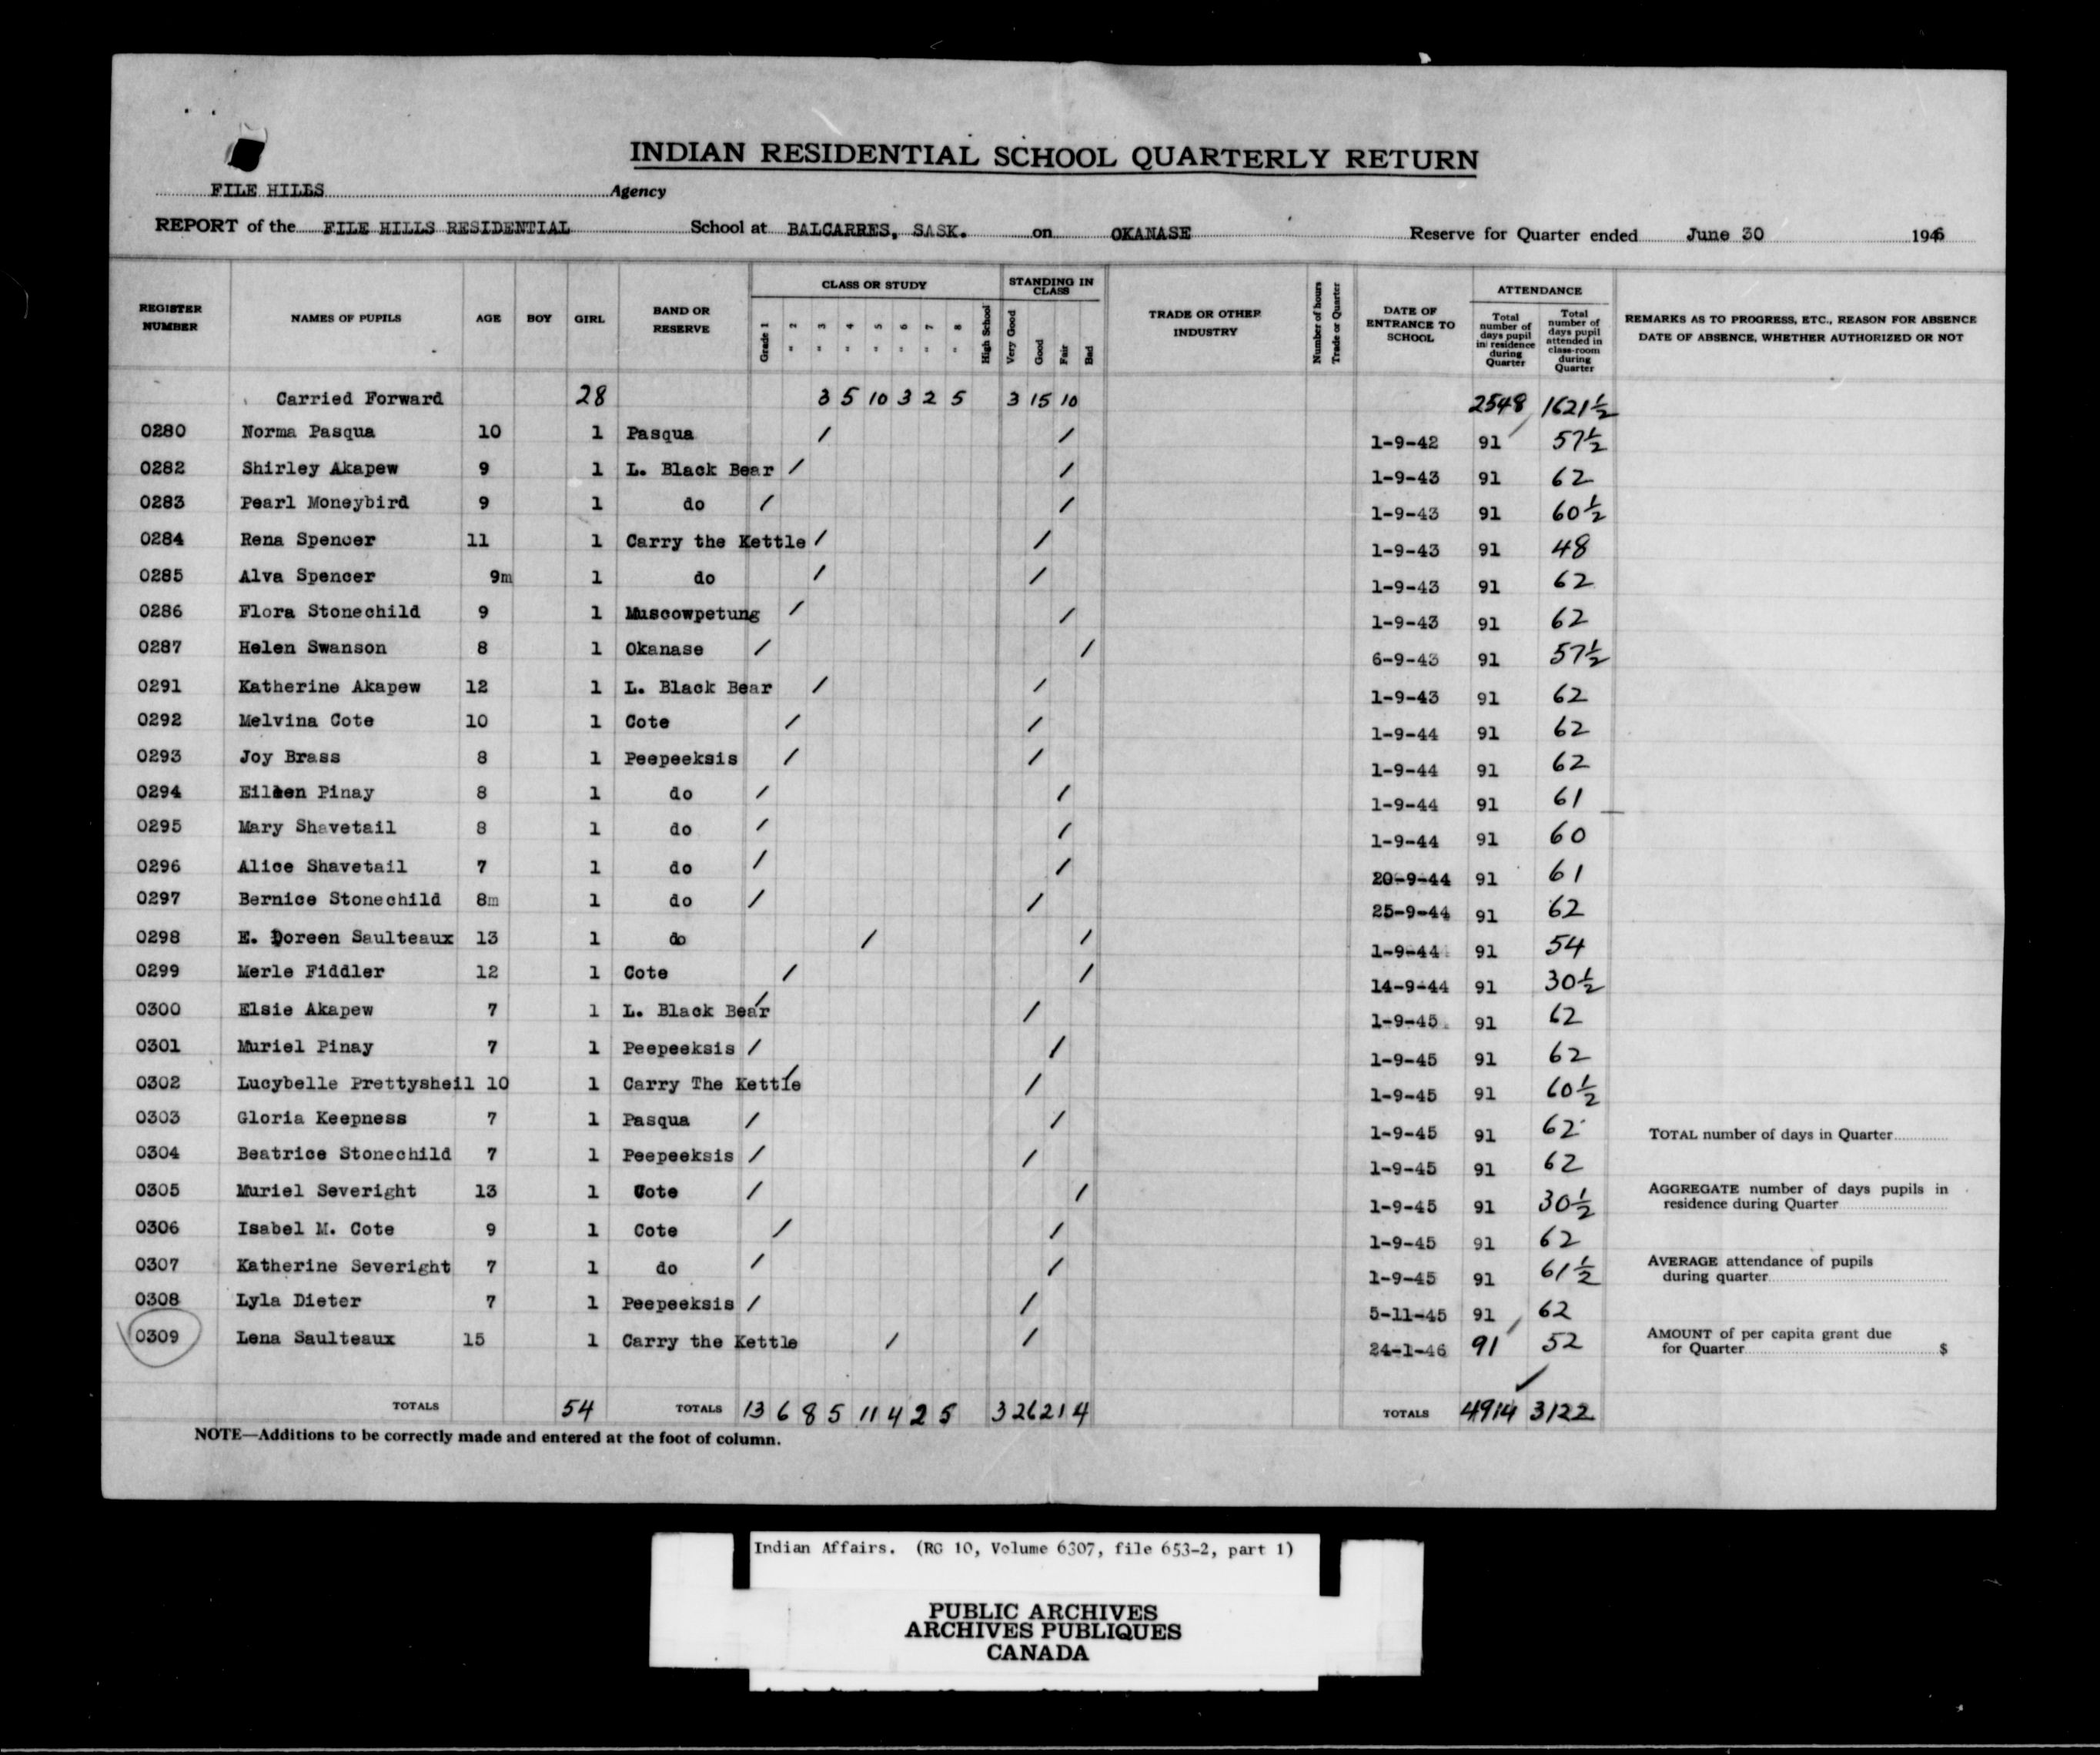 INDIAN RESIDENTIAL SCHOOL QUARTERLY RETURN
FILE HILLS Agency
REPORT of the FILE HILLS RESIDENTIAL School at BALCARRES, SASK. on OKANASE Reserve for Quarter ended June 30 1946
REGISTER NUMBER NAMES OF PUPILS AGE BOY GIRL BAND OR RESERVE CLASS OR STUDY Grade 1 " 2 " 3 " 4 " 5 " 6 " 7 " 8 High School STANDING IN CLASS Very Good Good Fair Bad TRADE OR OTHER INDUSTRY Number of hours Trade or Quarter DATE OF ENTRANCE TO SCHOOL ATTENDANCE Total number of days pupil in residence during Quarter Total number of days pupil attended in class-room during Quarter REMARKS AS TO PROGRESS, ETC., REASON FOR ABSENCE DATE OF ABSENCE, WHETHER AUTHORIZED OR NOT
Carried Forward 28 3 5 10 3 2 5 3 15 10 2548 1621½
0280 Norma Pasqua 10 1 Pasqua / / 1-9-42 91 57½
0282 Shirley Akapew 9 1 L. Black Bear / / 1-9-43 91 62
0283 Pearl Moneybird 9 1 do / / 1-9-43 91 60½
0284 Rena Spencer 11 1 Carry the Kettle / / 1-9-43 91 48
0285 Alva Spencer 9m 1 do / / 1-9-43 91 62
0286 Flora Stonechild 9 1 Muscowpetung / / 1-9-43 91 62
0287 Helen Swanson 8 1 Okanase / / 6-9-43 91 57½
0291 Katherine Akapew 12 1 L. Black Bear / / 1-9-43 91 62
0292 Melvina Cote 10 1 Cote / / 1-9-44 91 62
0293 Joy Brass 8 1 Peepeeksis / / 1-9-44 91 62
0294 Eileen Pinay 8 1 do / / 1-9-44 91 61
0295 Mary Shavetail 8 1 do / / 1-9-44 91 60
0296 Alice Shavetail 7 1 do / / 20-9-44 91 61
0297 Bernice Stonechild 8m 1 do / / 25-9-44 91 62
0298 E. Doreen Saulteaux 13 1 do / / 1-9-44 91 54
0299 Merle Fiddler 12 1 Cote / / 14-9-44 91 30½
0300 Elsie Akapew 7 1 L. Black Bear / / 1-9-45 91 62
0301 Muriel Pinay 7 1 Peepeeksis / / 1-9-45 91 62
0302 Lucybelle Prettysheil 10 1 Carry The Kettle / / 1-9-45 91 60½
0303 Gloria Keepness 7 1 Pasqua / / 1-9-45 91 62
TOTAL number of days in Quarter
0304 Beatrice Stonechild 7 1 Peepeeksis / / 1-9-45 91 62
0305 Muriel Severight 13 1 Cote / / 1-9-45 91 30½
AGGREGATE number of days pupils in
residence during Quarter
0306 Isabel M. Cote 9 1 Cote / / 1-9-45 91 62
0307 Katherine Severight 7 1 do / / 1-9-45 91 61½
AVERAGE attendance of pupils
during quarter
0308 Lyla Dieter 7 1 Peepeeksis / / 5-11-45 91 62
0309 Lena Saulteaux 15 1 Carry the Kettle / / 24-1-46 91 52
AMOUNT of per capita grant due
for Quarter $
TOTALS 54 TOTALS 13 6 8 5 11 4 2 5 3 26 21 4 TOTALS 4914 3122
NOTE—Additions to be correctly made and entered at the foot of column.
Indian Affairs. (RG 10, Volume 6307, file 653-2, part 1)
PUBLIC ARCHIVES
ARCHIVES PUBLIQUES
CANADA